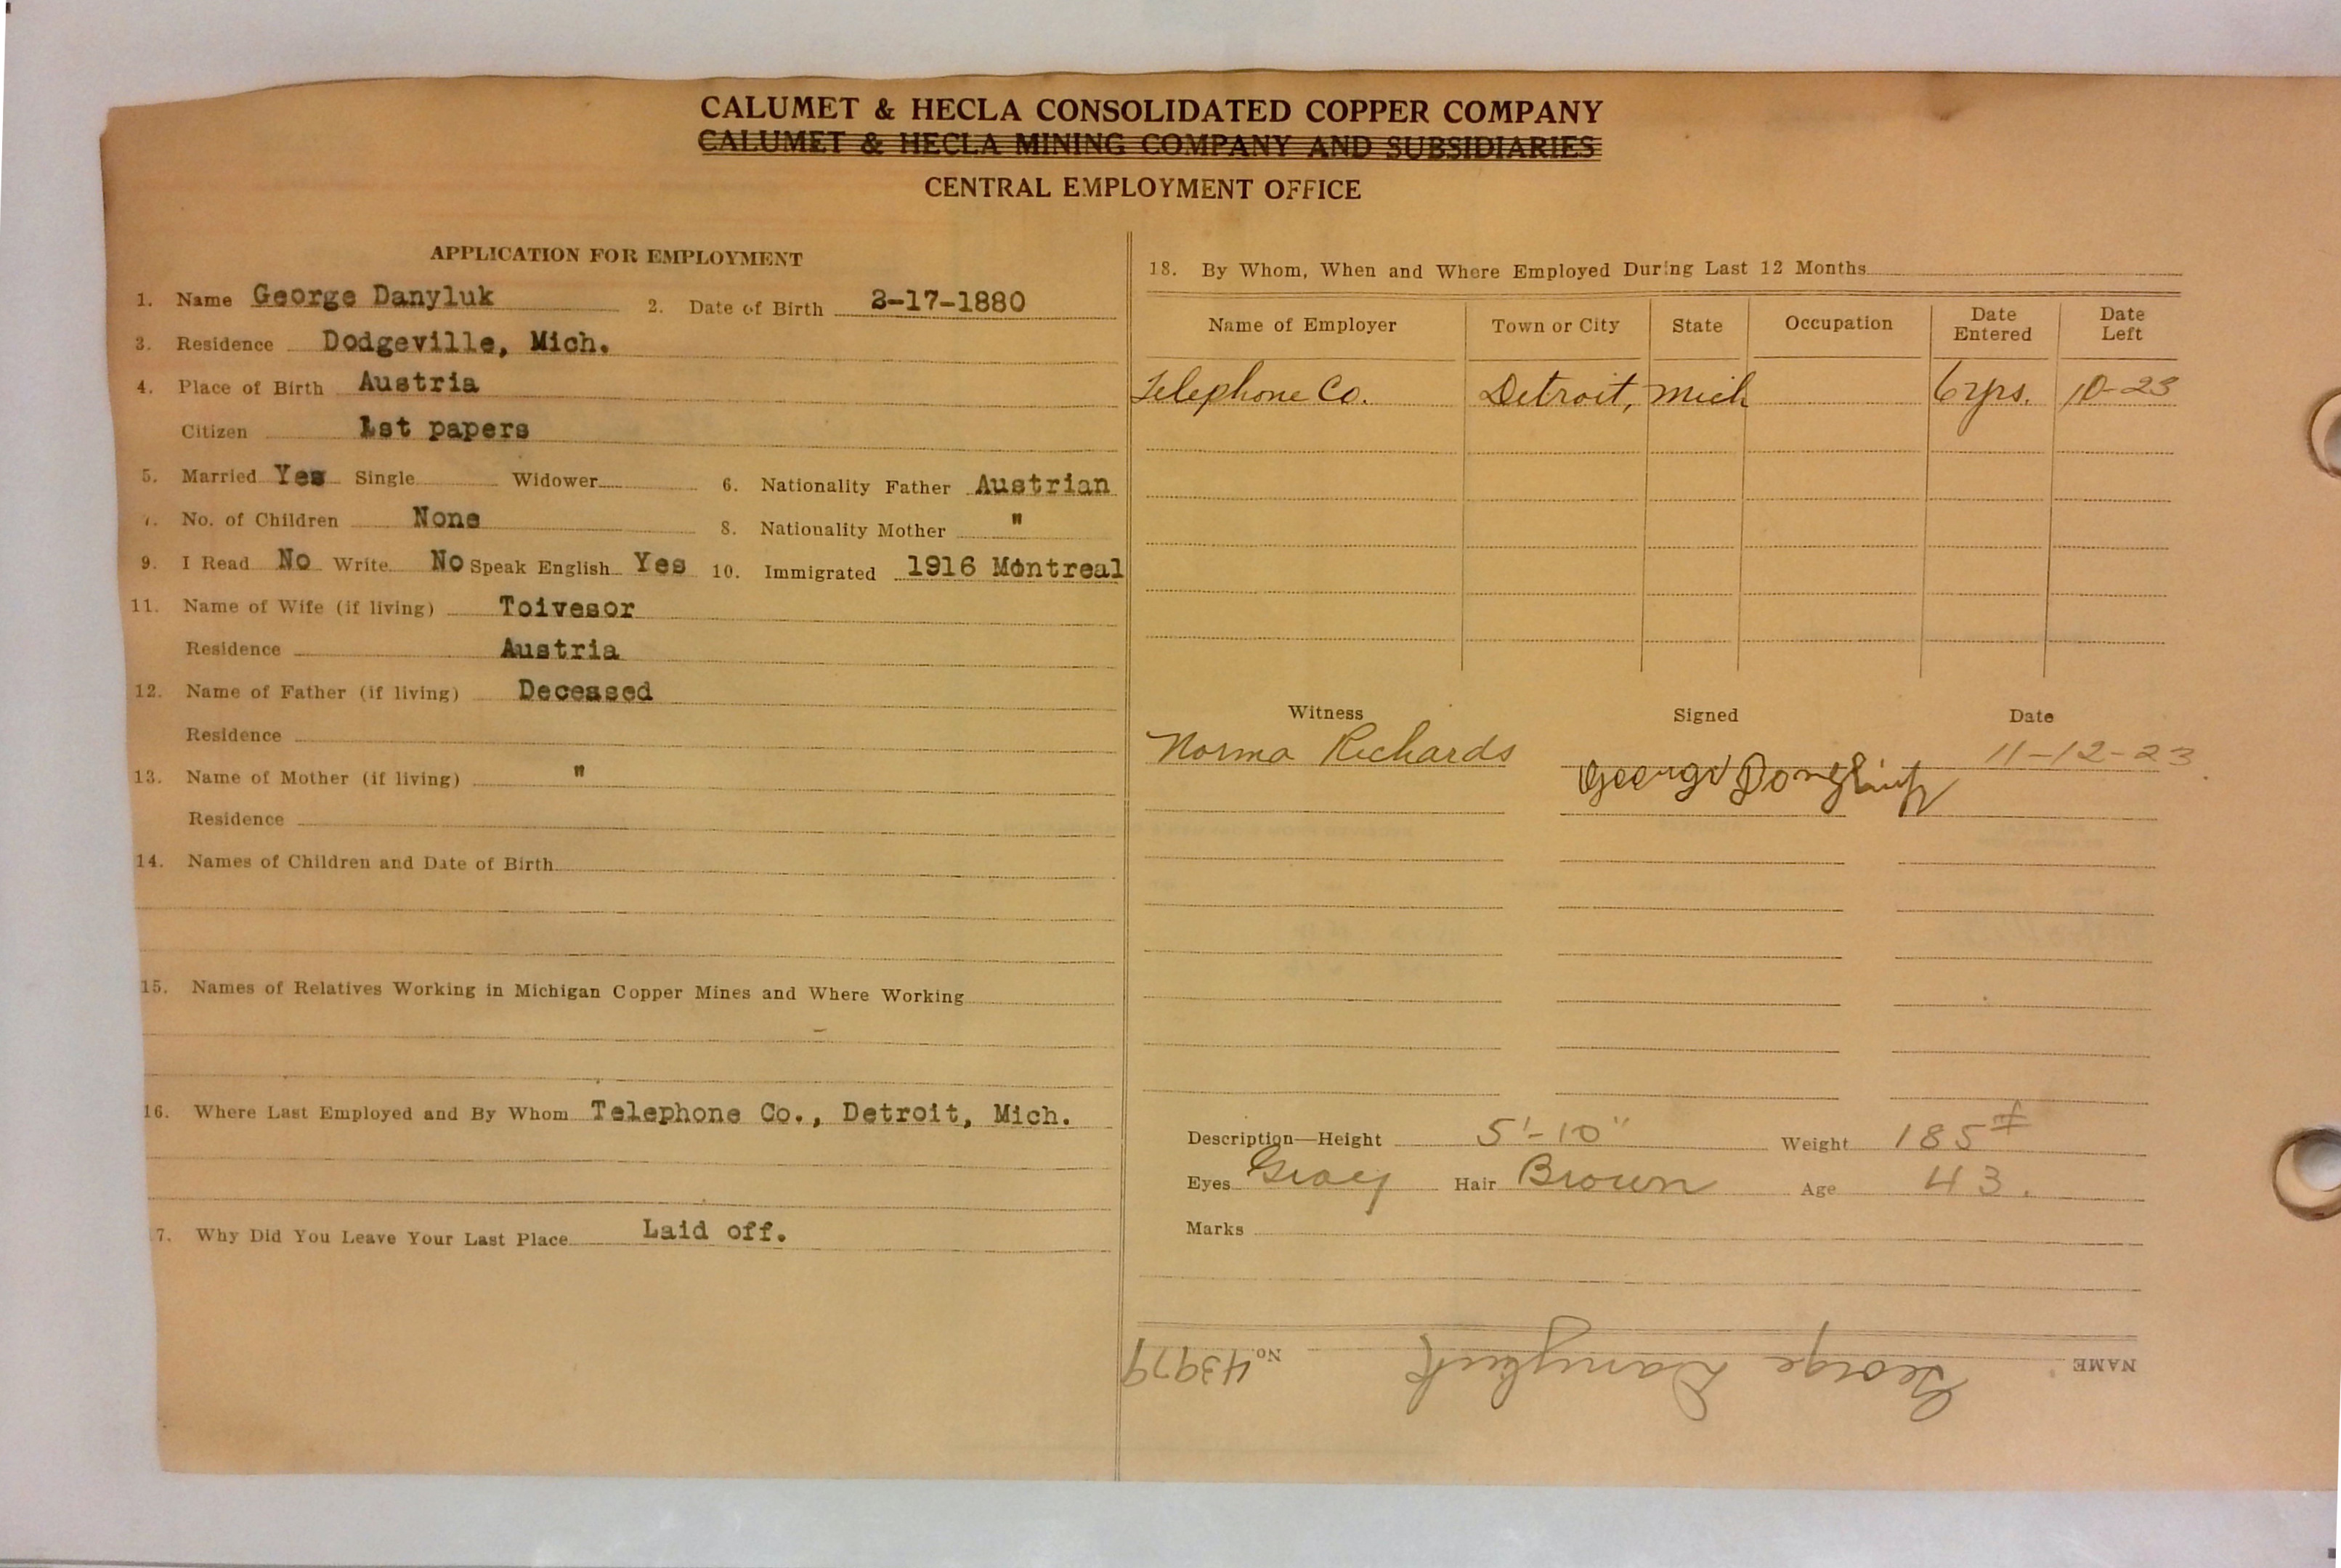 CALUMET & HECLA CONSOLIDATED COPPER COMPANY
CALUMET & HECLA MINING COMPANY AND SUBSIDIARIES
CENTRAL EMPLOYMENT OFFICE
APPLICATION FOR EMPLOYMENT
1. Name George Danyluk 2. Date of Birth -17-1880
3. Residence Dodgeville, Mich.
4. Place of Birth Austria
Citizen 1st papers
5. Married Yes Single Widower 6. Nationality Father Austrian
7. No. of Children None 8. Nationality Mother "
9. I Read No Write No Speak English Yes 10. Immigrated 1916 Montreal
11. Name of Wife (if living) Toivesor
Residence Austria
12. Name of Father (if living) Deceased
Residence
13. Name of Mother (if living) "
Residence
14. Names of Children and Date of Birth
15. Names of Relatives Working in Michigan Copper Mines and Where Working
-
16. Where Last Employed and By Whom Telephone Co., Detroit, Mich.
7. Why Did You Leave Your Last Place Laid off.
18. By Whom, When and Where Employed During Last 12 Months
Name of Employer Town or City State Occupation Date Entered Date Left
Telephone Co. Detroit, Mich 6 yrs. 10-23
Witness Signed Date
Norma Richards George 11-12-23
Description—Height 5'-10" Weight 185#
Eyes Gray Hair Brown Age 43.
Marks
NAME George Danyluk No. 43979